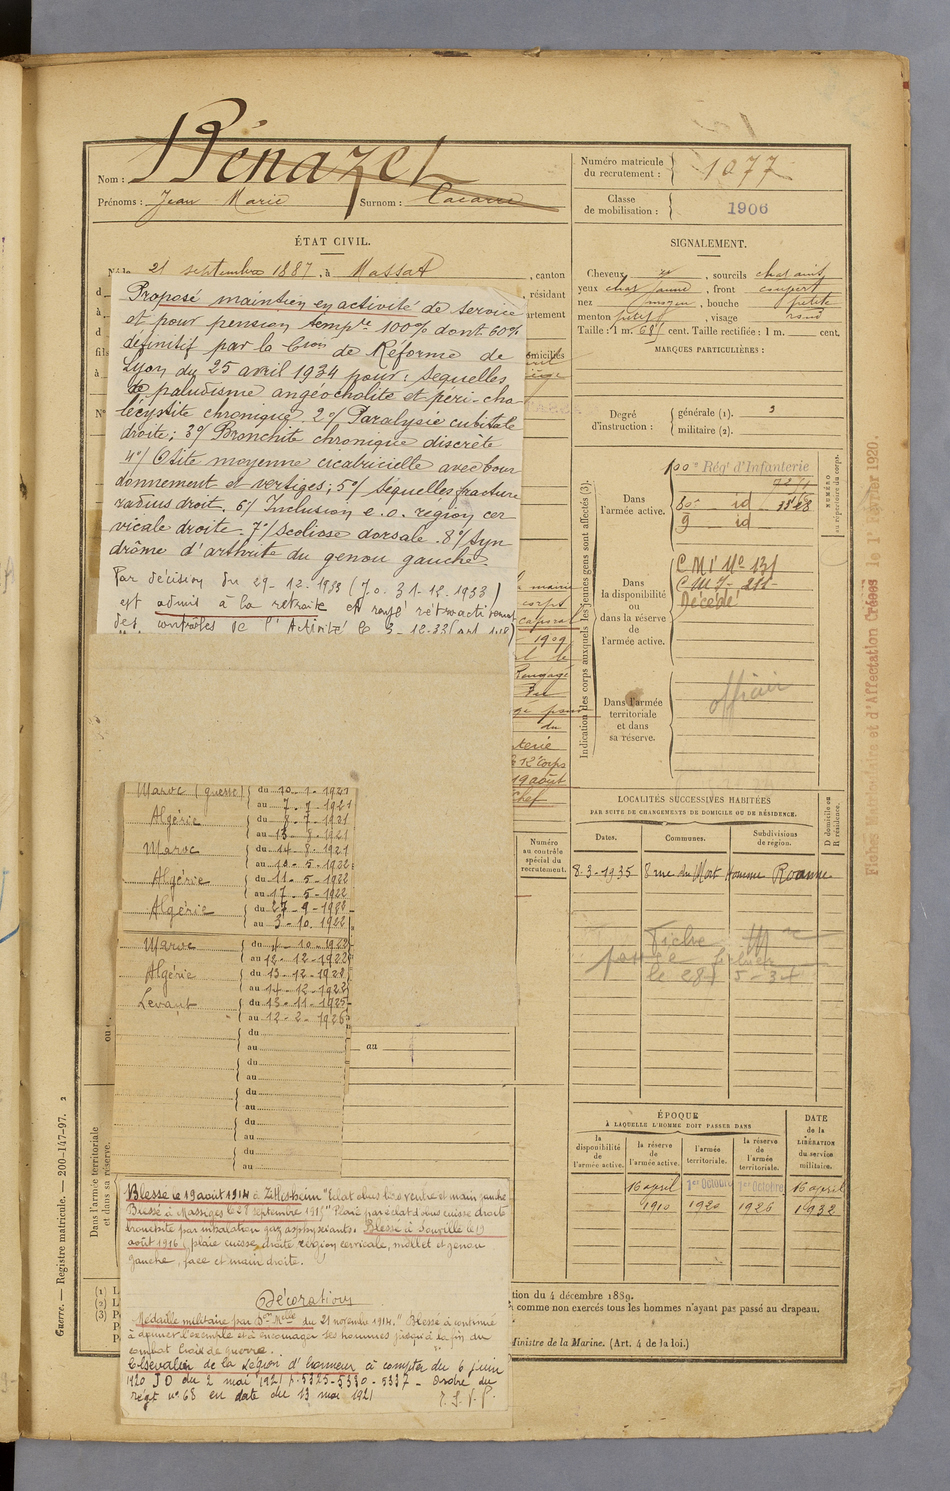 Nom : Bénazet
Prénoms : Jean Marie Surnom :
Numéro matricule
du recrutement : 1077
Classe
de mobilisation : 1906
ÉTAT CIVIL.
Né le 21 septembre 1887, à Massat, canton
, résidant
Proposé maintien en activité de service
et pour pension tempre 100% dont 60%
définitif par la Cion de Réforme de
Lyon du 25 avril 1934 pour: séquelles
de paludisme angéocholite et péri-cho-
lécystite chronique. 2°/ Paralysie cubitale
droite; 3°/ Bronchite chronique discrète
4°/ Otite moyenne cicatricielle avec bour
donnement et vertiges; 5°/ séquelles fracture
radius droit. 6°/ Inclusion e.o. région cer
vicale droite. 7°/ Scoliose dorsale. 8°/ Syn
drôme d'arthrite du genou gauche.
Par décision du 29-12-1933 (J.o. 31-12-1933)
est admis à la retraite et rayé rétroactivement
des contrôles de l'Activité le 3-12-33
Maroc (guerre) du 10-1-1921
au 7-7-1921
Algérie du 8-7-1921
au 13-8-1921
Maroc du 14-8-1921
au 10-5-1922
Algérie du 11-5-1922
au 17-5-1922
Algérie du 27-9-1922
au 3-10-1922
Maroc du 4-10-1922
au 12-12-1922
Algérie du 13-12-1922
au 14-12-1922
Levant du 13-11-1925
au 12-2-1926
du
au
du
au
du
au
du
au
du
au
au
Blessé le 19 août 1914 à Zillisheim "Eclat obus bas ventre et main gauche
Blessé à Massiges le 28 septembre 1915 "Plaie par éclat d'obus cuisse droite
bronchite par inhalation gaz asphyxiants. Blessé à Souville le 19
août 1916, plaie cuisse droite, région cervicale, mollet et genou
gauche, face et main droite.
Décorations
Médaille militaire par Don Melle du 21 novembre 1914. "Blessé a continué
à donner l'exemple et à encourager ses hommes jusqu'à la fin du
combat Croix de guerre.
Chevalier de la Légion d'honneur à compter du 6 juin
1920 JO du 2 mai 1921 p. 5325-5330-5337 - Ordre du
régt n° 68 en date du 13 mai 1921
T.S.V.P.
SIGNALEMENT.
Cheveux, sourcils châtains
yeux chat. jaune, front couvert
nez moyen, bouche petite
menton petit, visage rond
Taille : 1 m. 68 cent. Taille rectifiée : 1 m. cent.
MARQUES PARTICULIÈRES :
Degré
d'instruction :
générale (1). 3
militaire (2).
Indication des corps auxquels les jeunes gens sont affectés (3).
NUMÉRO
au répertoire du corps.
Dans
l'armée active.
100e Régt d'Infanterie
80e id
9 id
Dans
la disponibilité
ou
dans la réserve
de
l'armée active.
Décédé
Dans l'armée
territoriale
et dans
sa réserve.
officier
LOCALITÉS SUCCESSIVES HABITÉES
PAR SUITE DE CHANGEMENTS DE DOMICILE OU DE RÉSIDENCE.
Dates.
Communes.
Subdivisions
de région.
D domicile ou
R résidence.
8-3-1935 8 rue du Mort Homme Roanne
Fiche
le 28
5-34
Numéro
au contrôle
spécial du
recrutement.
ÉPOQUE
À LAQUELLE L'HOMME DOIT PASSER DANS
la
disponibilité
de
l'armée active.
la réserve
de
l'armée active.
l'armée
territoriale.
la réserve
de
l'armée
territoriale.
DATE
de la
LIBÉRATION
du service
militaire.
16 avril 1er Octobre 1er Octobre 16 avril
1910 1920 1926 1932
tion du 4 décembre 1889.
comme non exercés tous les hommes n'ayant pas passé au drapeau.
Ministre de la Marine. (Art. 4 de la loi.)
Dans l'armée territoriale
et dans sa réserve.
Guerre. — Registre matricule. — 200-147-97. 2
Fiches Matriculaire et d'Affectation Créées le 1er Février 1920.